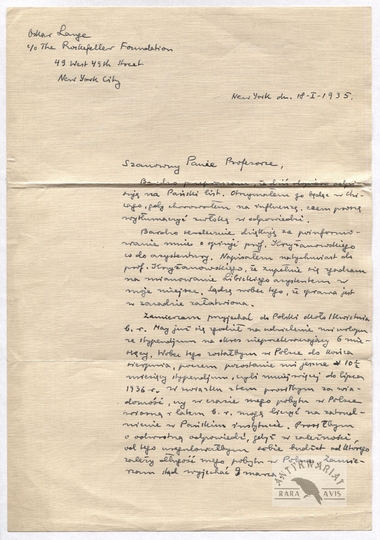 Oskar Lange
c/o The Rockefeller Foundation
49 West 49th Street
New York City
New York dn. 18-I-1935.
Szanowny Panie Profesorze,
Bardzo przepraszam, że dziś dopiero odpi-
suję na Pański list. Otrzymałem go będąc w Chi-
cago, gdy chorowałem na influenzę, czem proszę
wytłumaczyć zwłokę w odpowiedzi.
Bardzo serdecznie dziękuję za poinformo-
wanie mnie o opinji prof. Krzyżanowskiego
co do asystentury. Napisałem natychmiast do
prof. Krzyżanowskiego, iż zupełnie się zgadzam
na mianowanie Libickiego asystentem w
moje miejsce. Sądzę wobec tego, iż sprawa jest
w zasadzie załatwiona.
Zamierzam przyjechać do Polski około 1 kwietnia
b. r. Mają już się zgodzić na udzielenie mi urlopu
ze stypendjum na okres nieprzekraczający 6 mie-
sięcy. Wobec tego zostałbym w Polsce do końca
sierpnia, poczem pozostanie mi jeszcze 10½
miesięcy stypendjum, czyli mniej więcej do lipca
1936 r. W związku z tem prosiłbym za wia-
domość, czy w czasie mego pobytu w Polsce
wiosną i latem b. r. mogę liczyć na zatrud-
nienie w Pańskim instytucie. Prosiłbym
o odwrotną odpowiedź, gdyż w zależności
od tego uregulowałbym sobie budżet od którego
zależy długość mego pobytu w Polsce. Zamie-
rzam stąd wyjechać 9 marca
ANTYKWARIAT
RARA AVIS